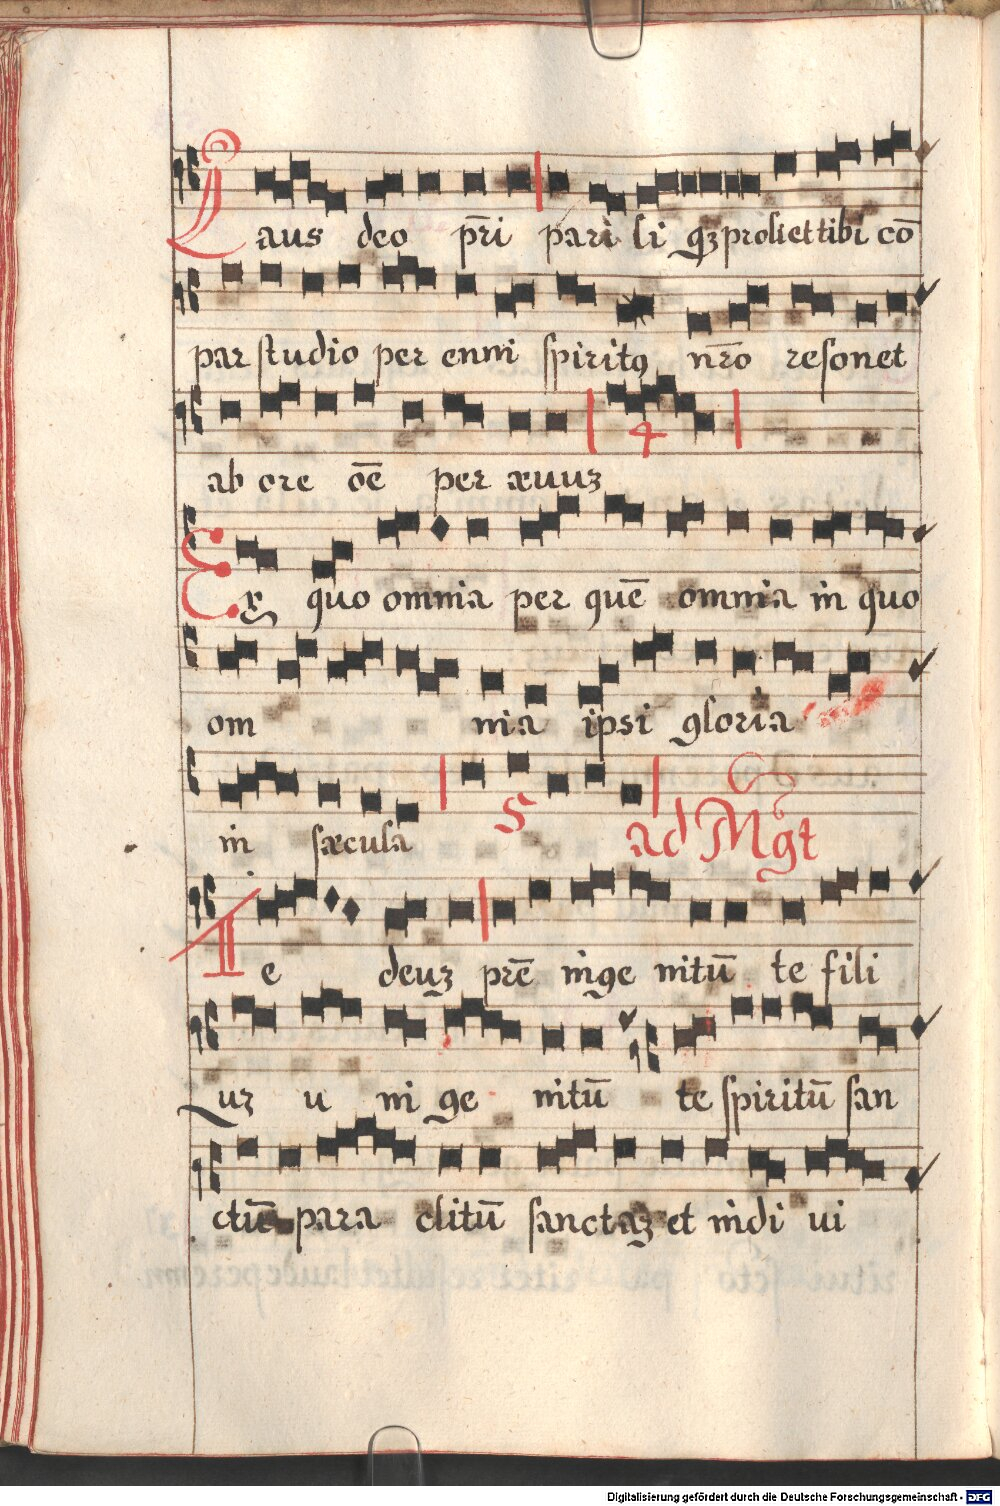 Laus deo pr̄i pari li qꝫ proli et tibi co̅
par studio per enni spiritꝰ nr̅o resonet
ab ore oē per æuuꝫ
4
Ex quo omnia per quē omnia in quo
om nia ipsi gloria
in sæcula
5 ad Mgt
Te deuꝫ prē inge nitū te fili
uꝫ u ni ge nitū te spiritū san
ctū para clitū sanctaꝫ et indi ui
Digitalisierung gefördert durch die Deutsche Forschungsgemeinschaft - DFG